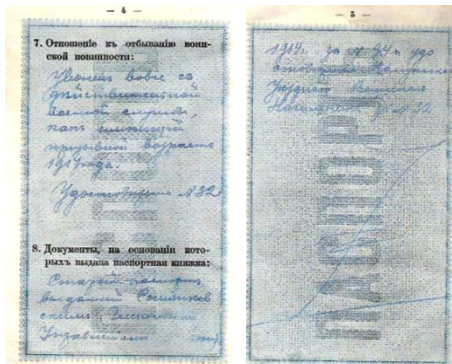 — 4 —
7. Отношеніе къ отбыванію воин-
ской повинности:
Уволенъ вовсе со
действительной
военной службы,
какъ имеющий
призывной возрастъ
1917 года.
Удостоверение №32
8. Документы, на основаніи кото-
рыхъ выдана паспортная книжка:
Старой паспортъ
выданный
— 5 —
1917. за № 94 и удо
стоверения
Уездного Воинского
Начальника № 32
ПАСПОРТЪ